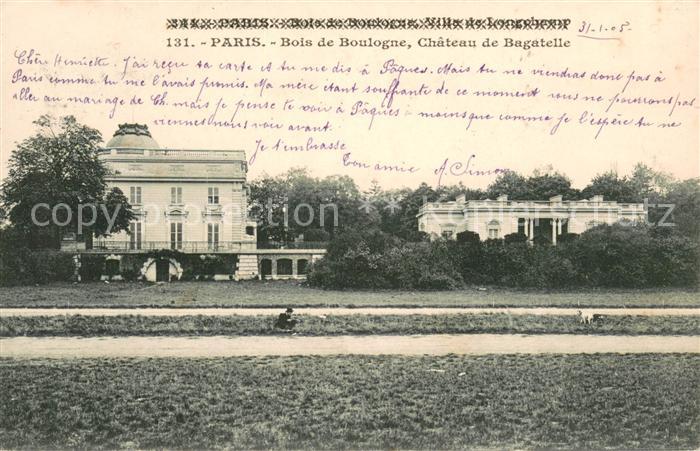 344. - PARIS. - Bois de Boulogne, Ville de Longchamp
31-1-05
131. - PARIS. - Bois de Boulogne, Château de Bagatelle
Chère Henriette. J'ai reçu ta carte et tu me dis à Pâques. Mais tu ne viendras donc pas à
Paris comme tu me l'avais promis. Ma mère étant souffrante de ce moment nous ne pourrons pas
aller au mariage de Ch. mais je pense te voir à Pâques à moins que comme je l'espère tu ne
viennes nous voir avant.
Je t'embrasse
Ton amie A. Simon
copyright
copyright